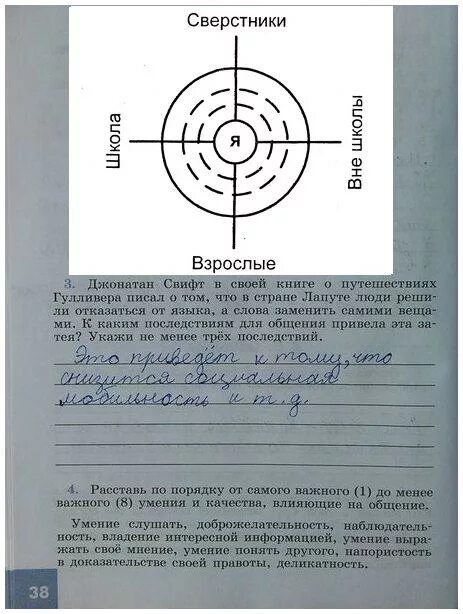 Сверстники
Школа
Я
Вне школы
Взрослые
3. Джонатан Свифт в своей книге о путешествиях
Гулливера писал о том, что в стране Лапуте люди реши-
ли отказаться от языка, а слова заменить самими веща-
ми. К каким последствиям для общения привела эта за-
тея? Укажи не менее трёх последствий.
Это приведёт к тому, что
снизится социальная
мобильность и т.д.
4. Расставь по порядку от самого важного (1) до менее
важного (8) умения и качества, влияющие на общение.
Умение слушать, доброжелательность, наблюдатель-
ность, владение интересной информацией, умение выра-
жать своё мнение, умение понять другого, напористость
в доказательстве своей правоты, деликатность.
38